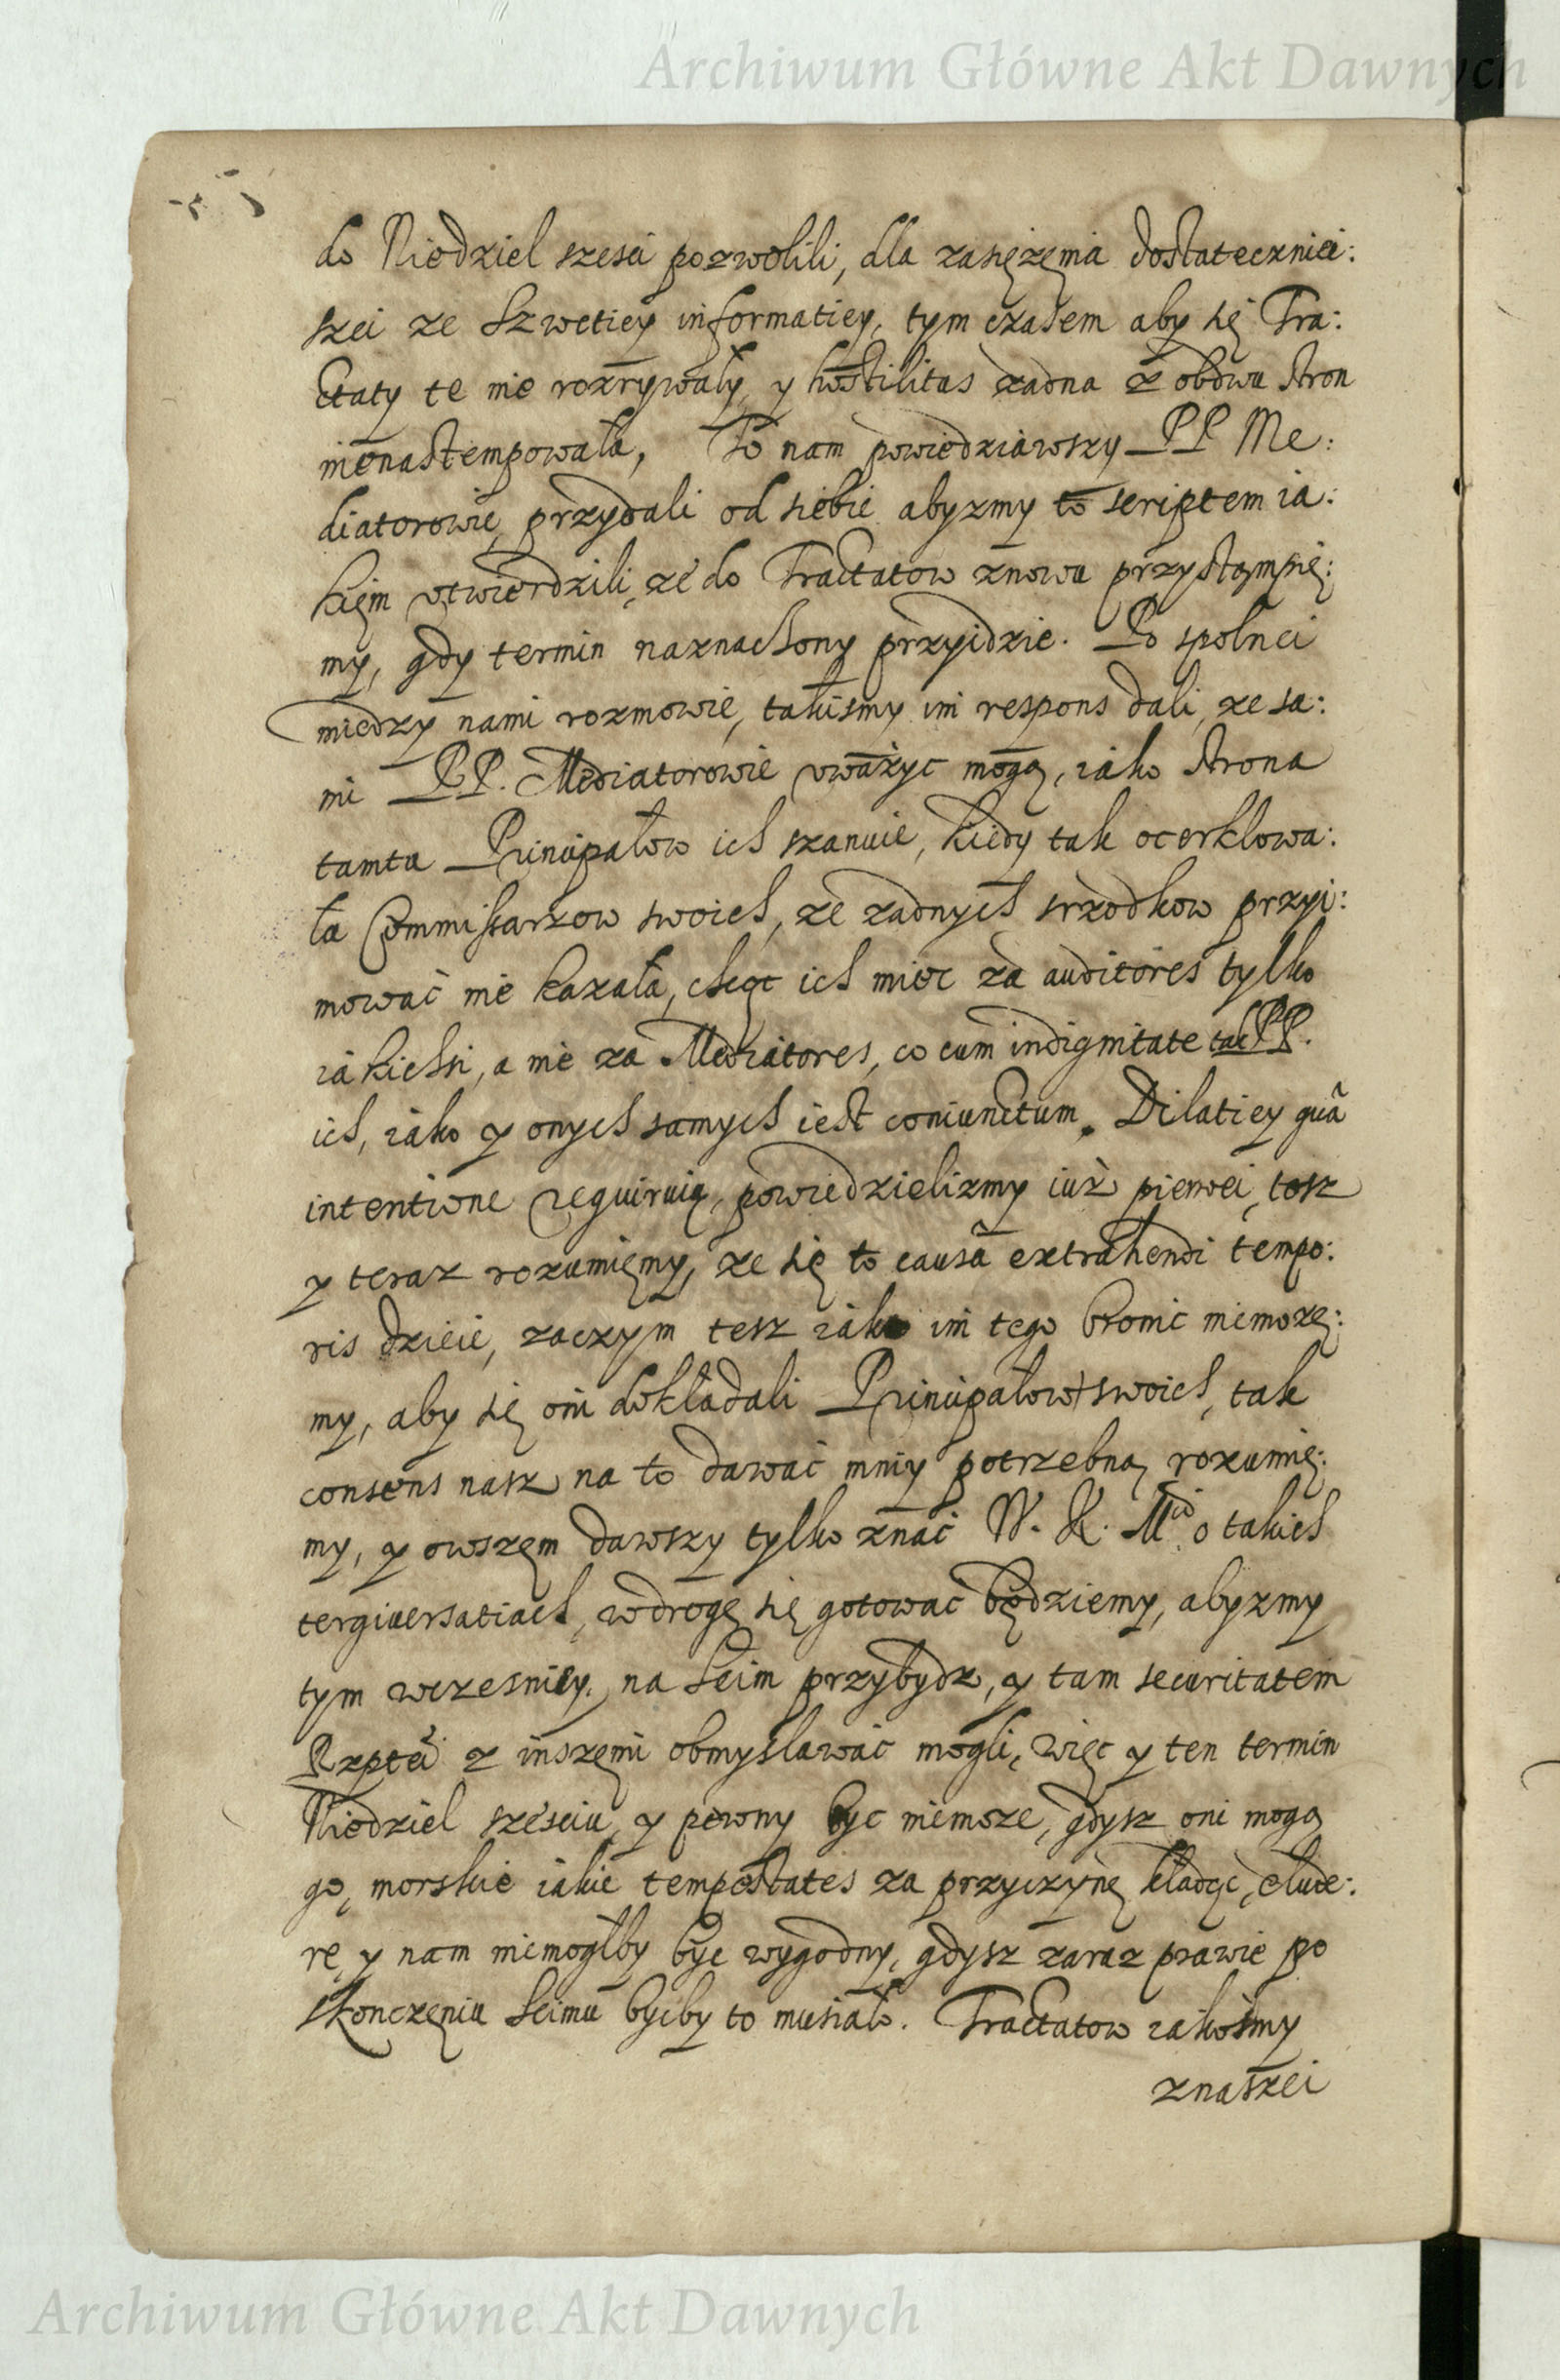 Archiwum Główne Akt Dawnych
do Niedziel szesci pozwolili, dla zasiężęnia dostateczniei:
szei ze Szwetiey informatiey, tym czasem aby się Tra:
ctaty te nie rozrywały, y hostilitas żadna z obdwu stron
nienastempowała, To nam powiedziawszy PP Me:
diatorowie, przydali od siebie abyzmy to scriptem ia:
kięm vtwierdzili, że do Tractatow znowu przystąmpię:
my, gdy termin naznachony przyidzie. Po spolnei
miedzy nami rozmowie, takiesmy im respons dali, ze sa:
mi PP. Mediatorowie vważyc mogą, iako strona
tamta Principałow ich szanuie, kiedy tak ocerklowa:
ła Commissarzow swoich, ze zadnych srzodkow przyi:
mować nie kazała, chcąc ich miec za auditores tylko
iakichsi, a nie za Mediatores, co cum indignitate tak PP.
ich, iako y onych samych iest coniunctum. Dilatiey quã
intentione requiruią, powiedzielizmy iuż pierwei, tesz
y teraz rozumięmy, że się to causã extrahendi tempo:
ris dzieie, zaczym tesz iako im tego bronic niemozę:
my, aby się oni dokładali Principałow swoich, tak
consens nasz na to dawać mniy potrzebną rozumię:
my, y owszęm dawszy tylko znać W. K. Mci o takich
tergiuersatiach, wdrogę się gotować będziemy, abyzmy
tym wczesniey na Seim przybydz, y tam securitatem
Rzptei z inszęmi obmyslawać mogli, więc y ten termin
Niedziel sześciu, y pewny byc niemoze, gdysz oni mogą
go, morskie iakie tempestates za przyczynę kładąc, elude:
re, y nam niemogłby byc wygodny, gdysz zaraz prawie po
skonczęniu Seimu bycby to musiało. Tractatow iakosmy
znaszei
Archiwum Główne Akt Dawnych